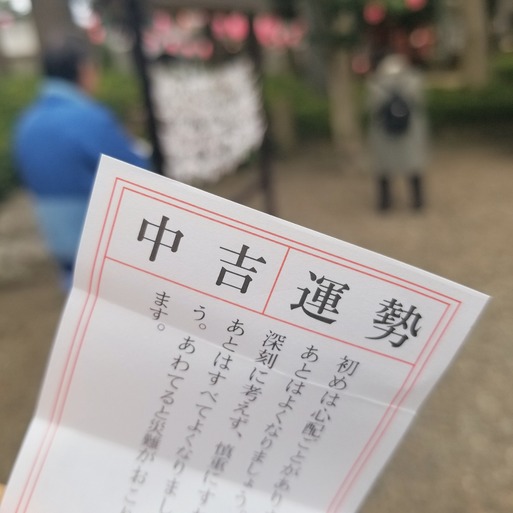 運勢
中吉
初めは心配ごとがあり
あとはよくなりましょう。
深刻に考えず、慎重にす
あとはすべてよくなりまし
う。あわてると災難がおこ
ます。